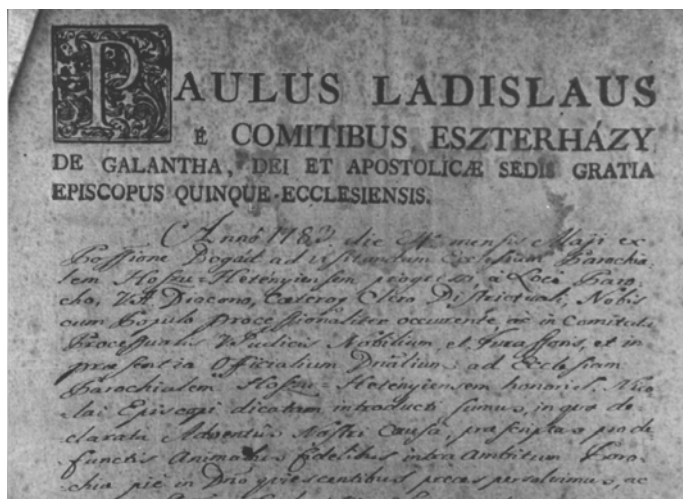 PAULUS LADISLAUS
É COMITIBUS ESZTERHÁZY
DE GALANTHA, DEI ET APOSTOLICÆ SEDIS GRATIA
EPISCOPUS QUINQUE-ECCLESIENSIS.
Anno die mensis Maji ex
Possione Bogád ad visitandam Ecclesiam Parochia-
lem Hoszu-Hetényiensem progressi, a Loci Paro-
cho, V. A. Diacono, Cæteroq Clero Districtuali, Nobis
cum Populo Processionaliter occurente ac in Comitatu
Processualis Judicis Nobilium et Jurassoris, et in
præsentia Officialium ad Ecclesiam
Parochialem Hoszu-Hetényiensem honori S. Nico
lai Episcopi dicatam introducti sumus, in qua de
clarata Adventus Nostri Causa, præscriptas pro de
functis Animabus fidelibus intra ambitum Paro-
chiæ pie in Dno quiescentibus preces persolvimus, ac